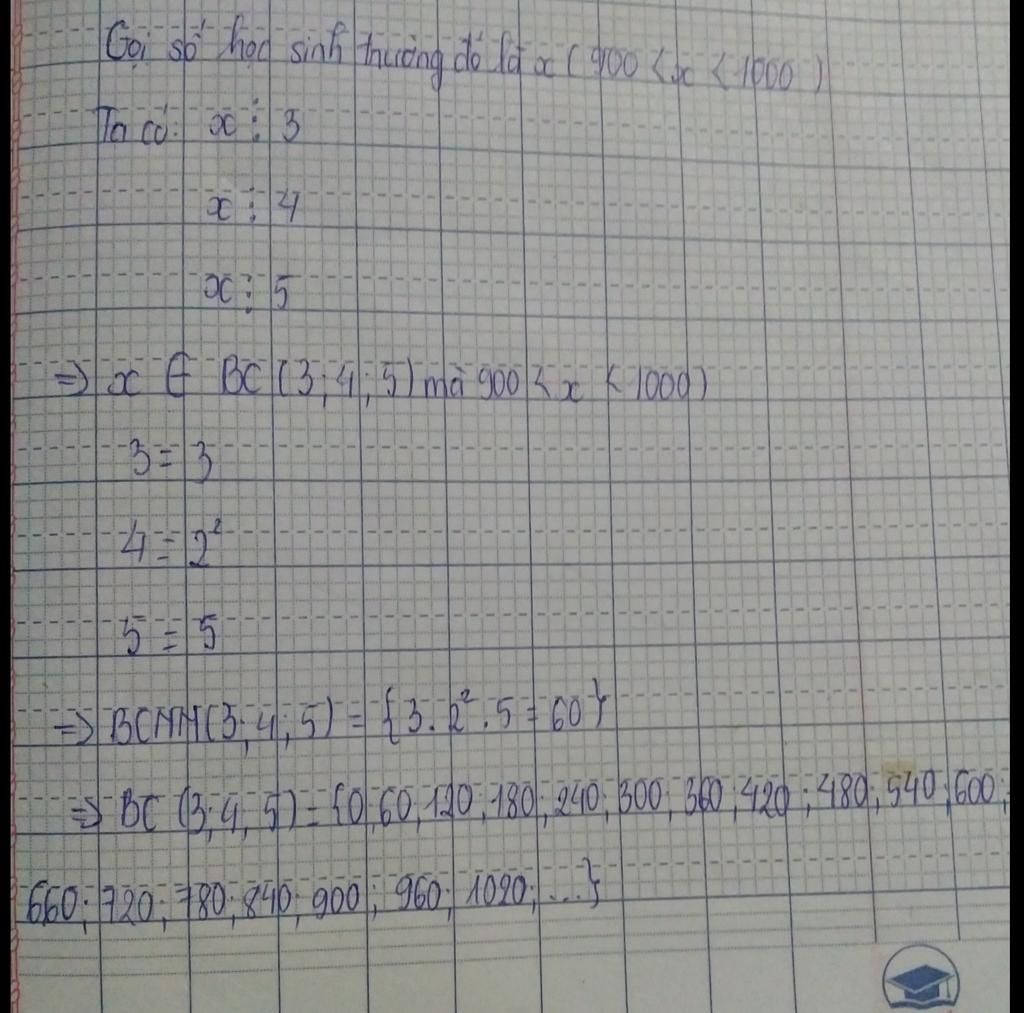 Gọi số học sinh trường đó là x ( 900 < x < 1000 )
Ta có: x ⋮ 3
x ⋮ 4
x ⋮ 5
=> x ∈ BC (3; 4; 5) mà 900 < x < 1000)
3 = 3
4 = 2²
5 = 5
=> BCNN(3; 4; 5) = {3. 2². 5 = 60}
=> BC (3; 4; 5) = {0; 60; 120; 180; 240; 300; 360; 420; 480; 540; 600;
660; 720; 780; 840; 900; 960; 1020; ...}